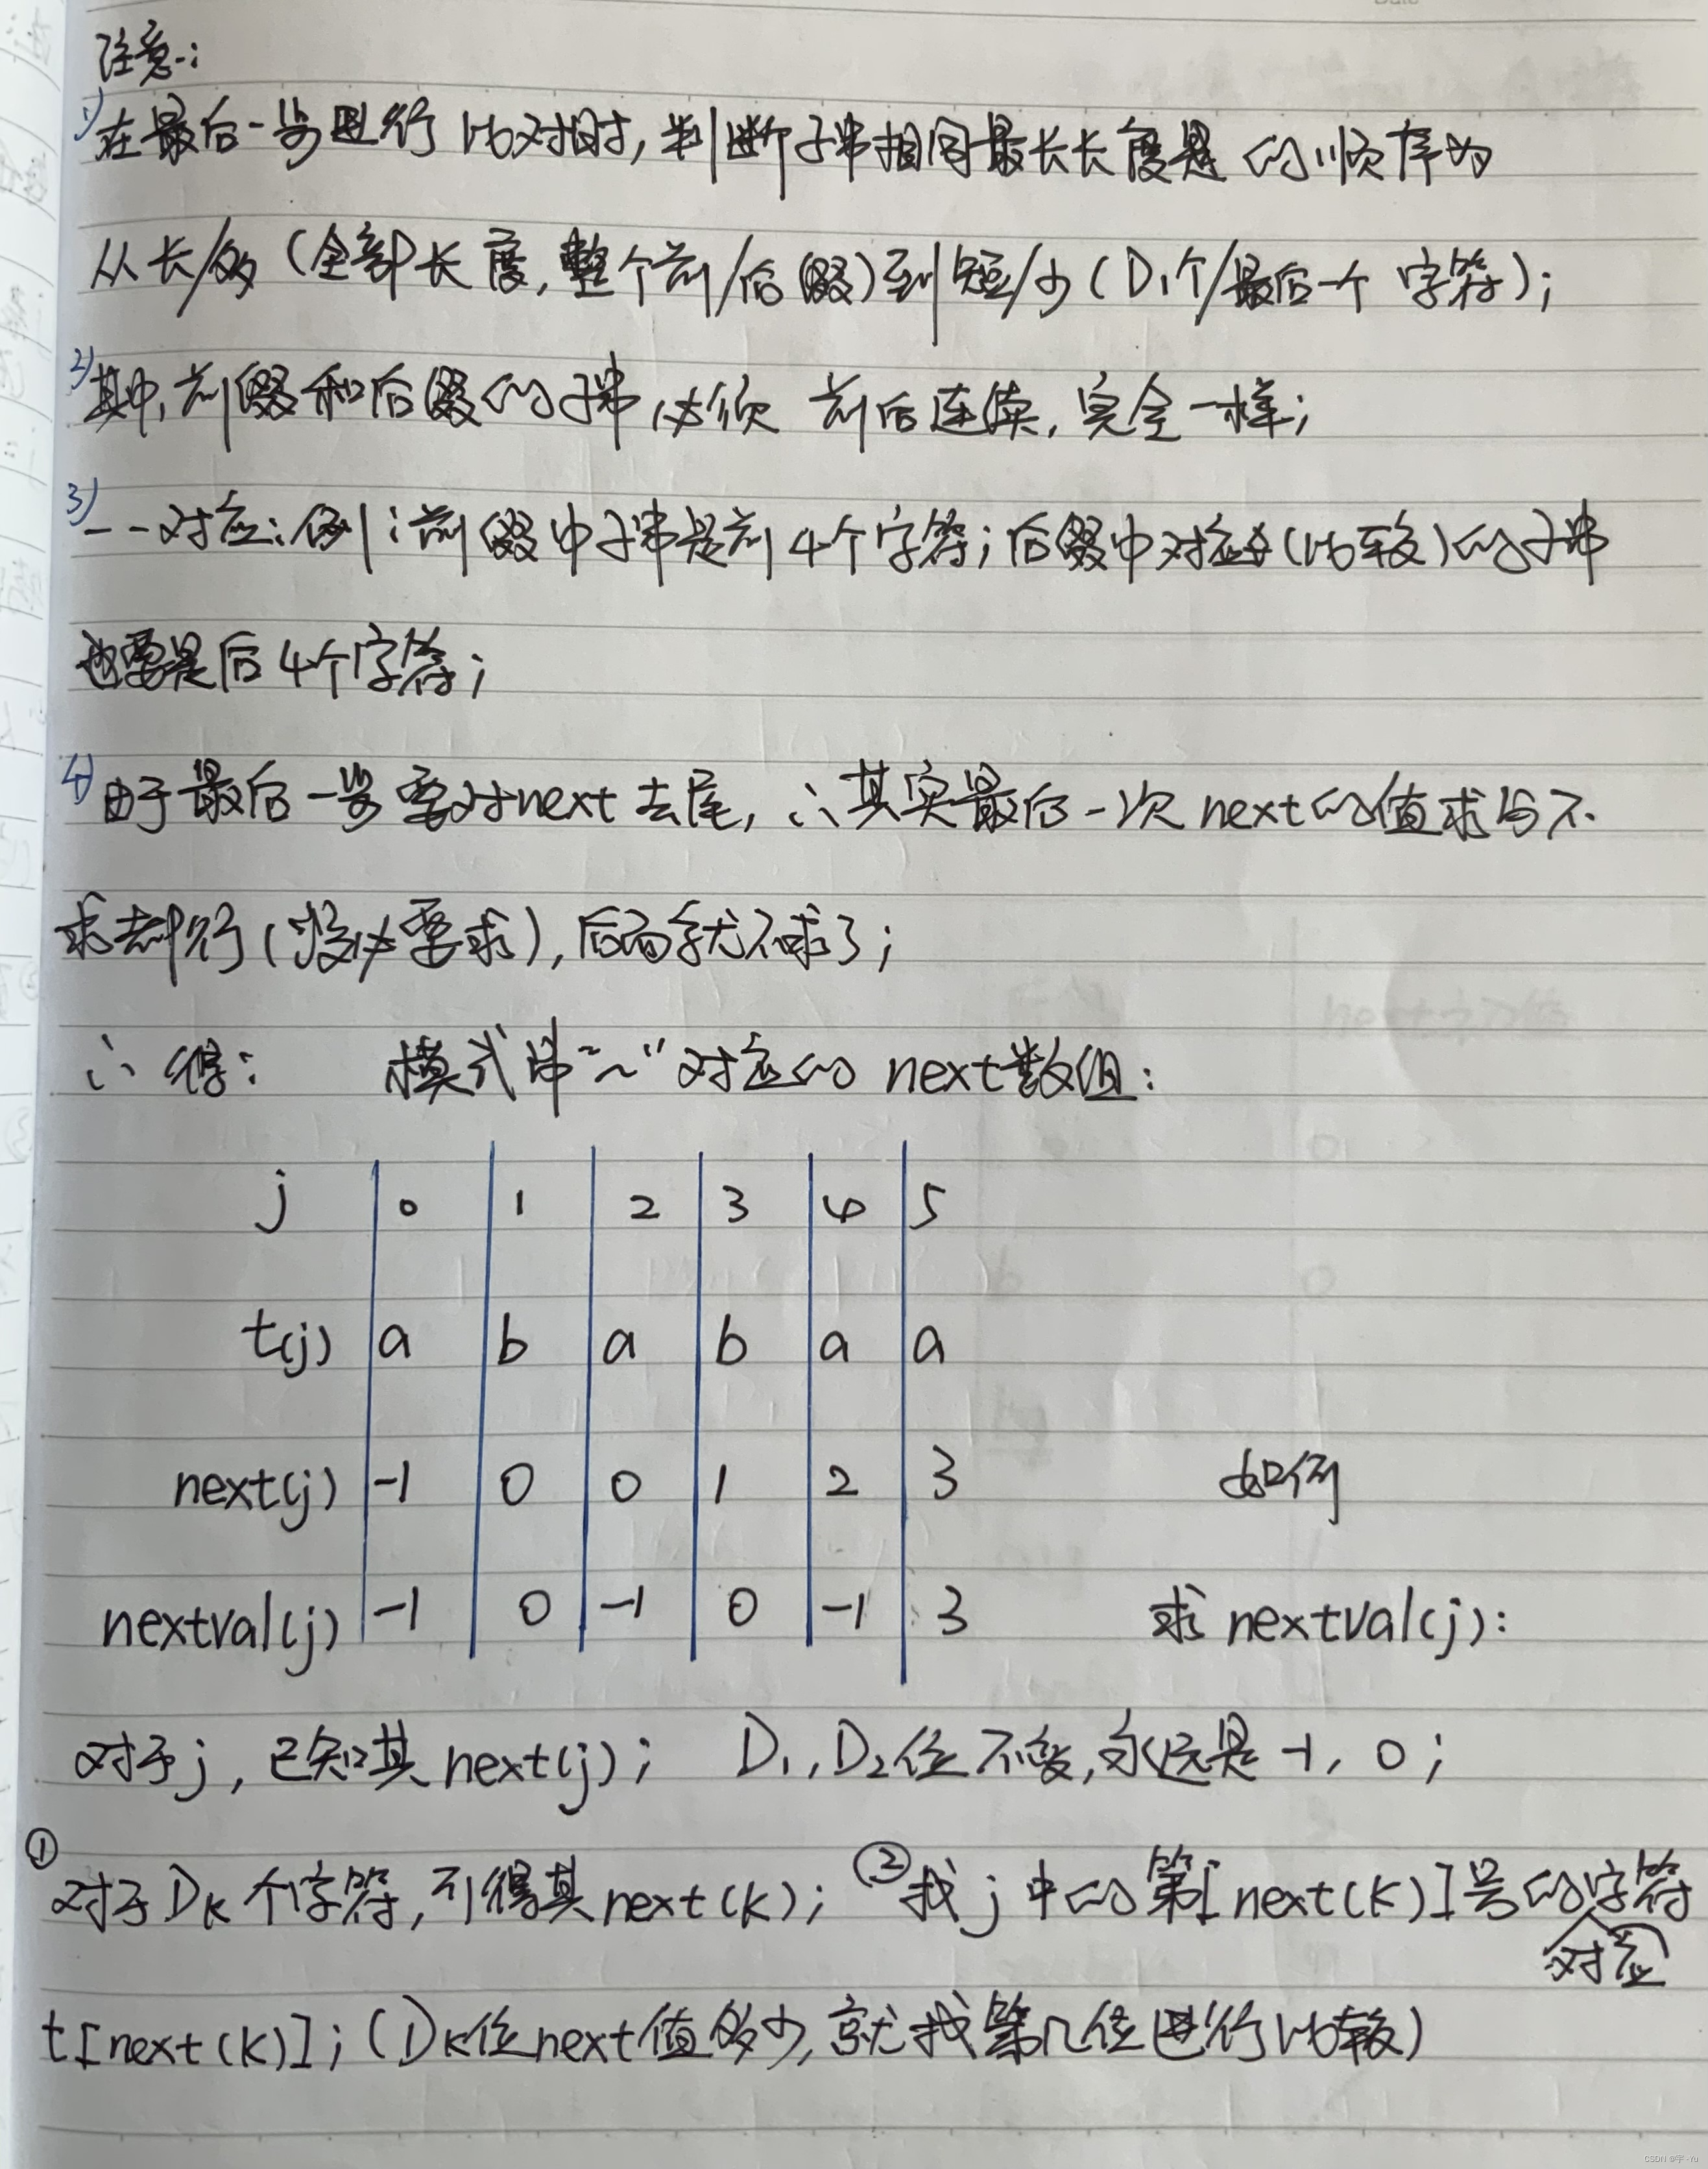 注意:
1) 在最后一步进行比对时, 判断子串相同最长长度是的顺序为
从长/多 (全部长度, 整个前/后缀) 到短/少 (D1个/最后一个 字符);
2) 其中, 前缀和后缀的子串必须 前后连续, 完全一样;
3) 一一对应: 例: 前缀中子串是前4个字符; 后缀中对应(比较)的子串
也要是后4个字符;
4) 由于最后一步要对next去尾, ∴其实最后一次next的值求与不
求都行 (没必要求), 后面就不求了;
∴得: 模式串"~"对应的 next数组:
j 0 1 2 3 4 5
t(j) a b a b a a
next(j) -1 0 0 1 2 3 如何
nextval(j) -1 0 -1 0 -1 3 求 nextval(j):
对于j, 已知其next(j); D1, D2位不变, 永远是 -1, 0;
① 对于DK个字符, 可得其next(K); ② 找j中的第[next(K)]号的字符
对应
t[next(K)]; (DK位next值多少, 就找第几位进行比较)
CSDN @宇-Yu